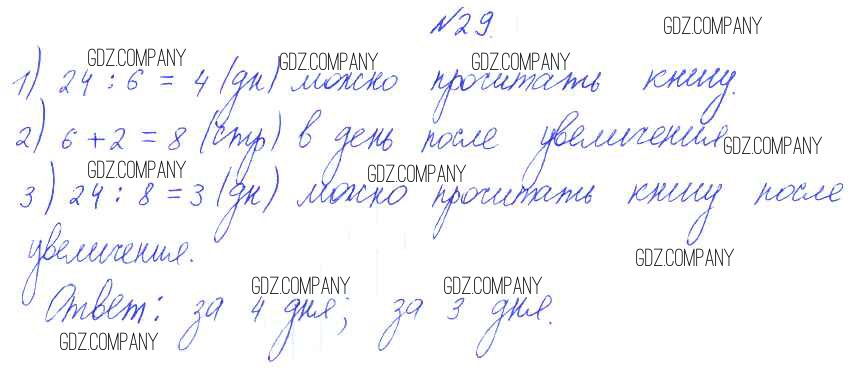 №29. GDZ.COMPANY
GDZ.COMPANY GDZ.COMPANY GDZ.COMPANY
1) 24 : 6 = 4 (дн) можно прочитать книгу.
2) 6 + 2 = 8 (стр) в день после увеличения GDZ.COMPANY
GDZ.COMPANY GDZ.COMPANY
3) 24 : 8 = 3 (дн) можно прочитать книгу после
увеличения. GDZ.COMPANY
GDZ.COMPANY GDZ.COMPANY
Ответ: за 4 дня; за 3 дня.
GDZ.COMPANY